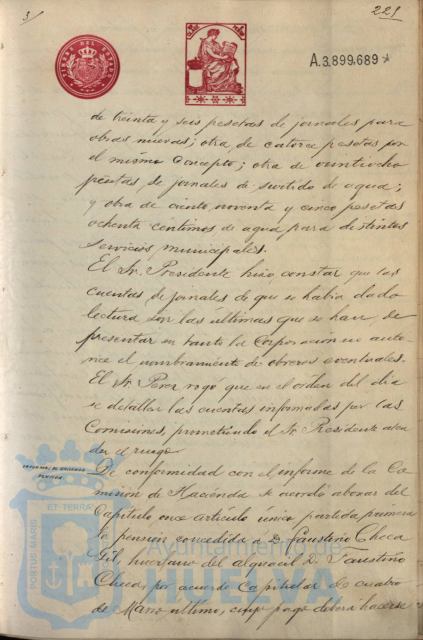 3
221
A.3,899,689
de treinta y seis pesetas de jornales para
obras nuevas; otra de catorce pesetas por
el mismo concepto; otra de veintiocho
pesetas de jornales de surtido de agua;
y otra de ciento noventa y cinco pesetas
ochenta céntimos de agua para distintos
servicios municipales.
El Sr. Presidente hizo constar que las
cuentas de jornales de que se había dado
lectura son las últimas que se han de
presentar en tanto la Corporación no auto-
rice el nombramiento de obreros eventuales.
El Sr. Perez rogó que en el orden del dia
se detallen las cuentas informadas por las
Comisiones, prometiendo el Sr. Presidente aten
der el ruego.
De conformidad con el informe de la Co
misión de Hacienda se acordó abonar del
Capítulo once artículo único partida primera
la pensión concedida a D. Faustino Checa
Gil, huerfano del alguacil D. Faustino
Checa, por acuerdo Capitular de cuatro
de Marzo último, cuyo pago deberá hacerse
PORTUS MARIS ET TERRAE
Ayuntamiento de
HUELVA